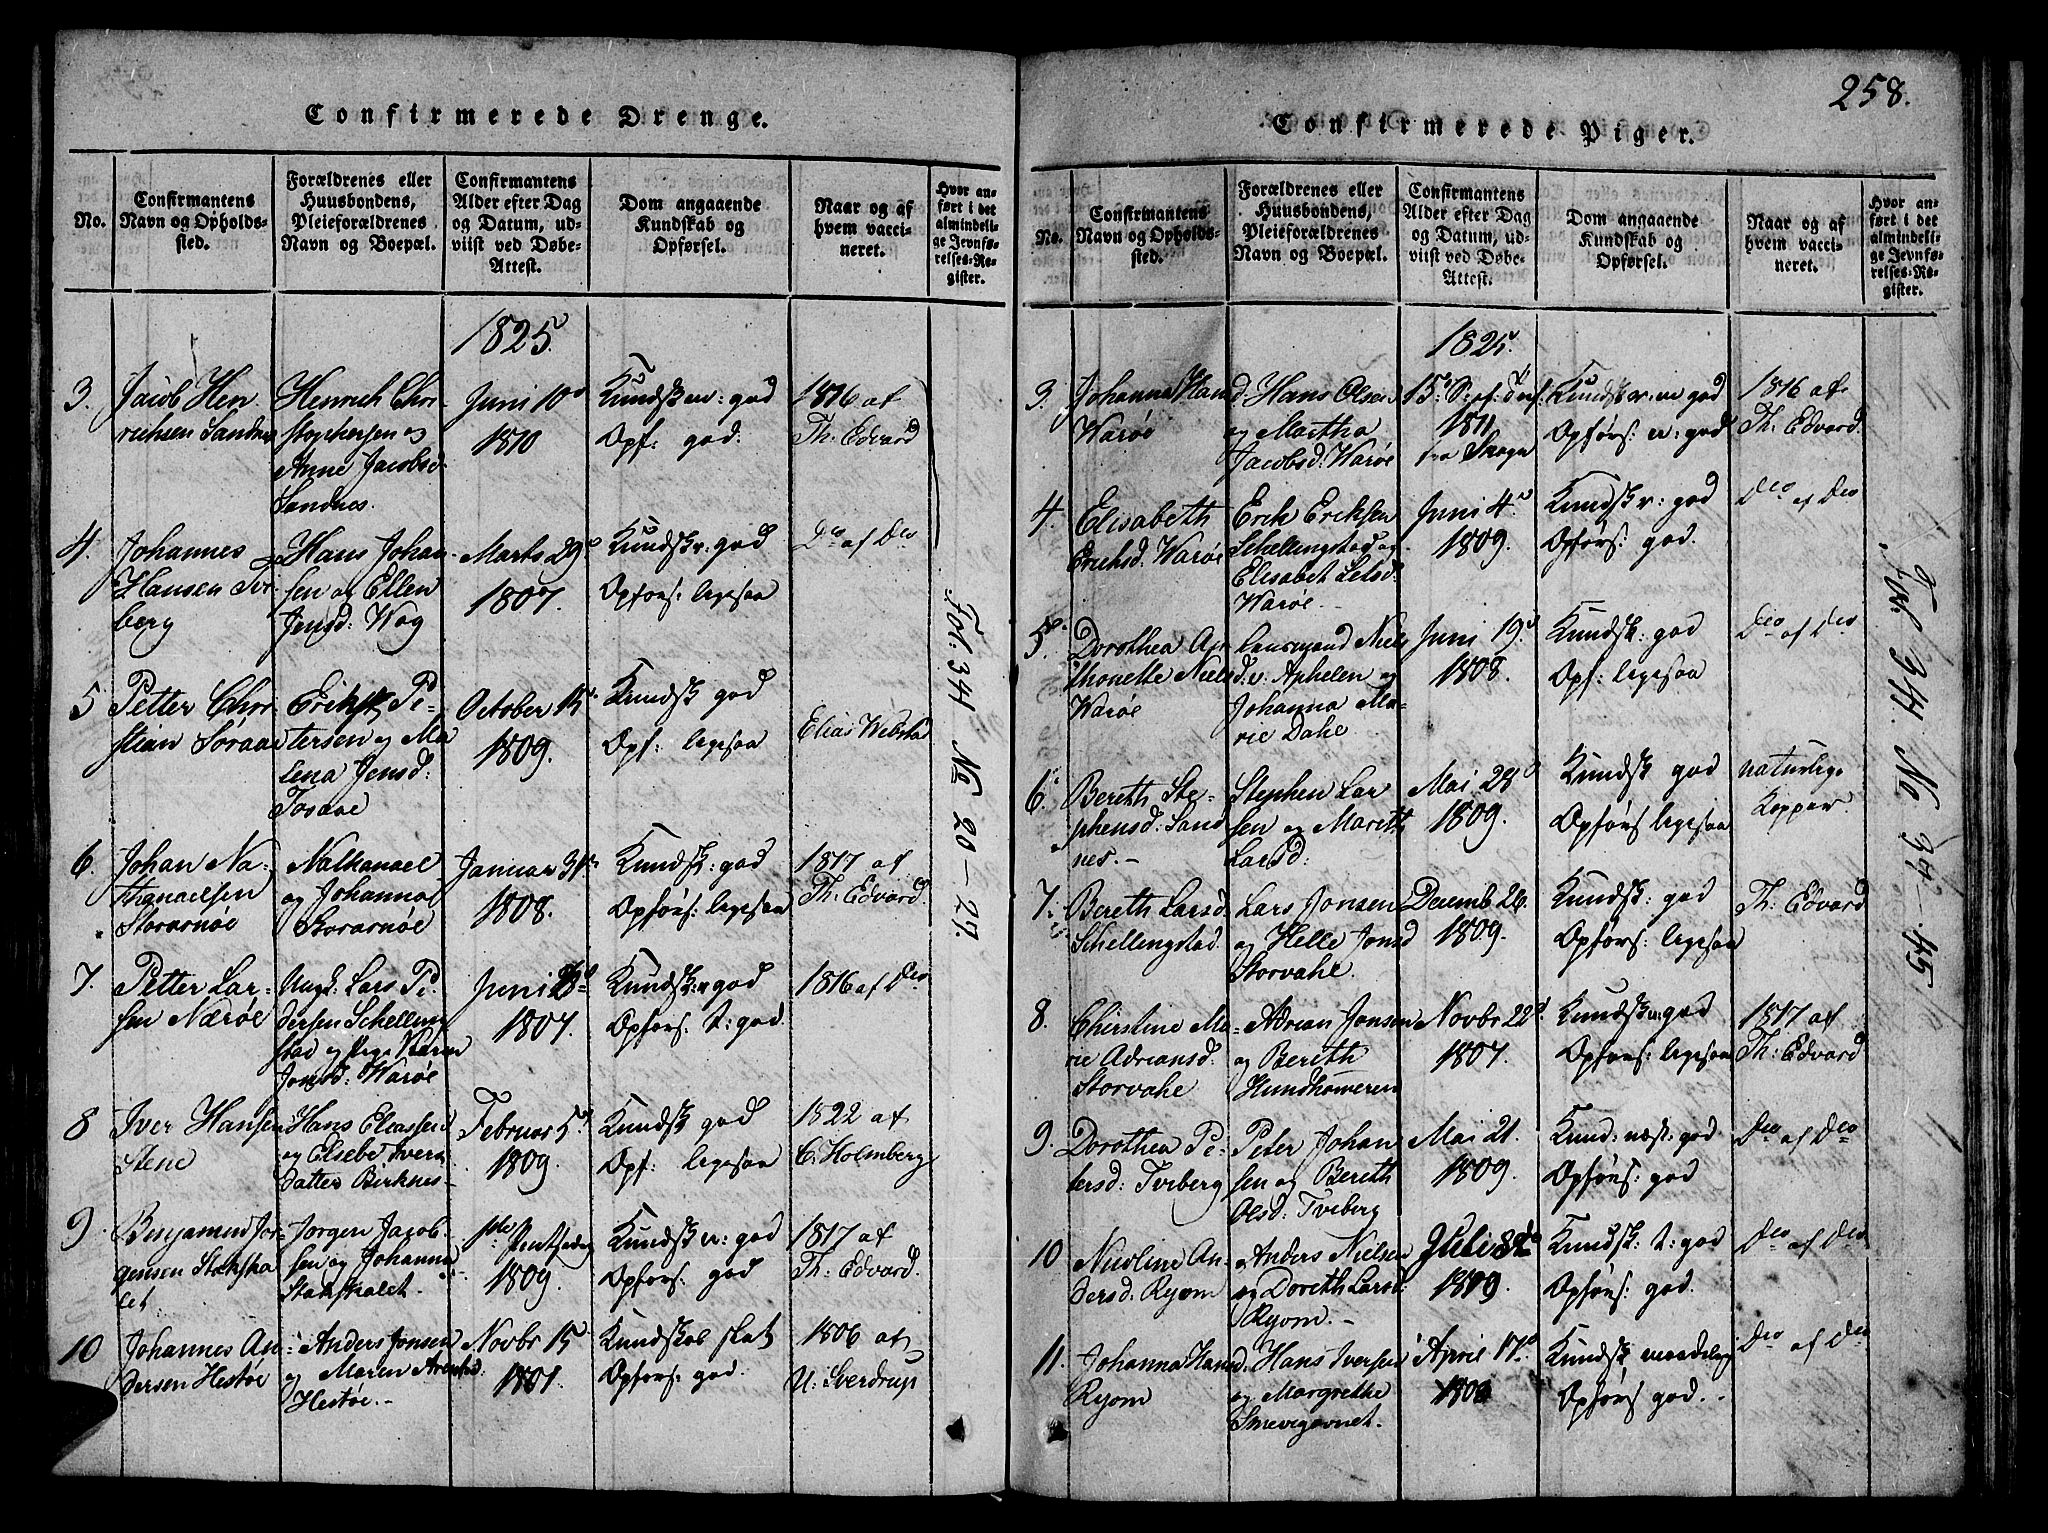 258.
Confirmerede Drenge.
No.
Confirmantens
Navn og Opholds-
sted.
Forældrenes eller
Huusbondens,
Pleieforældrenes
Navn og Boepæl.
Confirmantens
Alder efter Dag
og Datum, ud-
viist ved Døbe-
Attest.
Dom angaaende
Kundskab og
Opførsel.
Naar og af
hvem vacci-
neret.
Hvor an-
ført i det
almindeli-
ge Jevnfø-
relses-Re-
gister.
1825.
3.
Jacob Hen
richsen Sandnes
Henrich Chri-
stophersen og
Anne Jacobsd
Sandnes.
Juni 10d
1810
Kundsk m: god
Opf: god.
1816 af
Th: Edvard
4.
Johannes
Hansen
berg
Hans Johan-
sen og Ellen
Jensd: Wog
Marts 29d
1807.
Kundsk v: god
Opførs: ligesaa
Do af Do
5
Petter Chri-
stian Soraae
Erik Pe-
tersen og Ma
lena Jensd:
October
1809.
Kundsk god
Opf: ligesaa
Elias Webstad
6.
Johan Na-
thanaelsen
Storarnøe
Nathanael
og Johanna
Storarnøe
Januar 31
1808.
Kundsk: god
Opførs: ligesaa
1817 af
Th: Edvard.
7.
Petter Lar-
sen Nærøe
Ungk: Lars Pe
dersen Schelling
stad og Pige Karen
Jonsd: Warøe
Juni
1807.
Kundsk: god
Opførs: t: god.
1816 af Do
8
Iver Hansen
Stene
Hans Eliassen
og Elsebe Ivers
datter Birknes-
Februar 5d
1809.
Kundsk god
Opf: ligesaa
1822 af
C. Holmberg
9.
Benjamin Jør-
gensen Stokska
let
Jørgen Jacob-
sen og Johanna
Stokskalet.
1ste Pintsedag
1809.
Kundsk u: god
Opførs: god
1817 af
Th: Edvard.
10
Johannes An-
dersen Hestøe
Anders Jonsen
og Maren
Hestøe.-
Novbr 15
1801.
Kundskab slet
Opførs: god.
1806 af
U: Sverdrup
Fol. 341 No 20-27.
Confirmerede Piger.
No.
Confirmantens
Navn og Opholds-
sted.
Forældrenes eller
Huusbondens,
Pleieforældrenes
Navn og Boepæl.
Confirmantens
Alder efter Dag
og Datum, ud-
viist ved Døbe-
Attest.
Dom angaaende
Kundskab og
Opførsel.
Naar og af
hvem vacci-
neret.
Hvor an-
ført i det
almindeli-
ge Jevnfø-
relses-Re-
gister.
1825.
3.
Johanna Hansd.
Warøe
Hans Olsen
og Martha
Jacobsd: Warøe
15 Sept:
1811
fra Skogn
Kundsk god
Opførs: god
1816 af
Th: Edvard.
4.
Elisabeth
Erichsd. Warøe
Erik Eriksen
Schellingstad og
Elisabet
Warøe.-
Juni 4d
1809.
Kundsk v: god
Opførs: god.
Do af Do
5.
Dorothea An
thonette Niels
Warøe
Lansmand Niels
d. v. Aphelen og
Johanna Ma-
rie Dahe
Juni 19d
1808.
Kundsk: god
Opf: ligesaa
Do af Do
6.
Bereth Ste-
phensd: Sand
nes.-
Stephen Lar
sen og Mareth
Larsd:
Mai 28d
1809.
Kundsk god
Opførs ligesaa
naturlige
Kopper
7.
Bereth Larsd.
Schellingstad.
Lars Jonsen
og Helle Jonsd
Storvahe.
Decemb 26.
1809.
Kundsk: god
Opførs: ligesaa
Th: Edvard
8.
Chirstine Ma-
rie Adriansd.
Storvahe
Adrian Jonsen
og Bereth
Hundhameren
Novbr 22d.
1807.
Kundsk u: god
Opførs: ligesaa
1817 af
Th: Edvard
9.
Dorothea Pe-
tersd: Tviberg
Peter Johan
sen og Bereth
Olsd: Tviberg
Mai 21.
1809.
Kund: næst: god
Opførs: god
Do af Do
10
Nicoline An-
dersd: Ryom
Anders Nielsen
og Doreth Larsd:
Ryom.-
Juli
1809.
Kundsk: t: god
Opførs: god.
Do af Do
11.
Johanna Hansd.
Ryom
Hans Iversen
og Margrethe
April 17d
Kundsk maadelig
Opførs god.-
Do af Do
Fol: 341. No 34-45